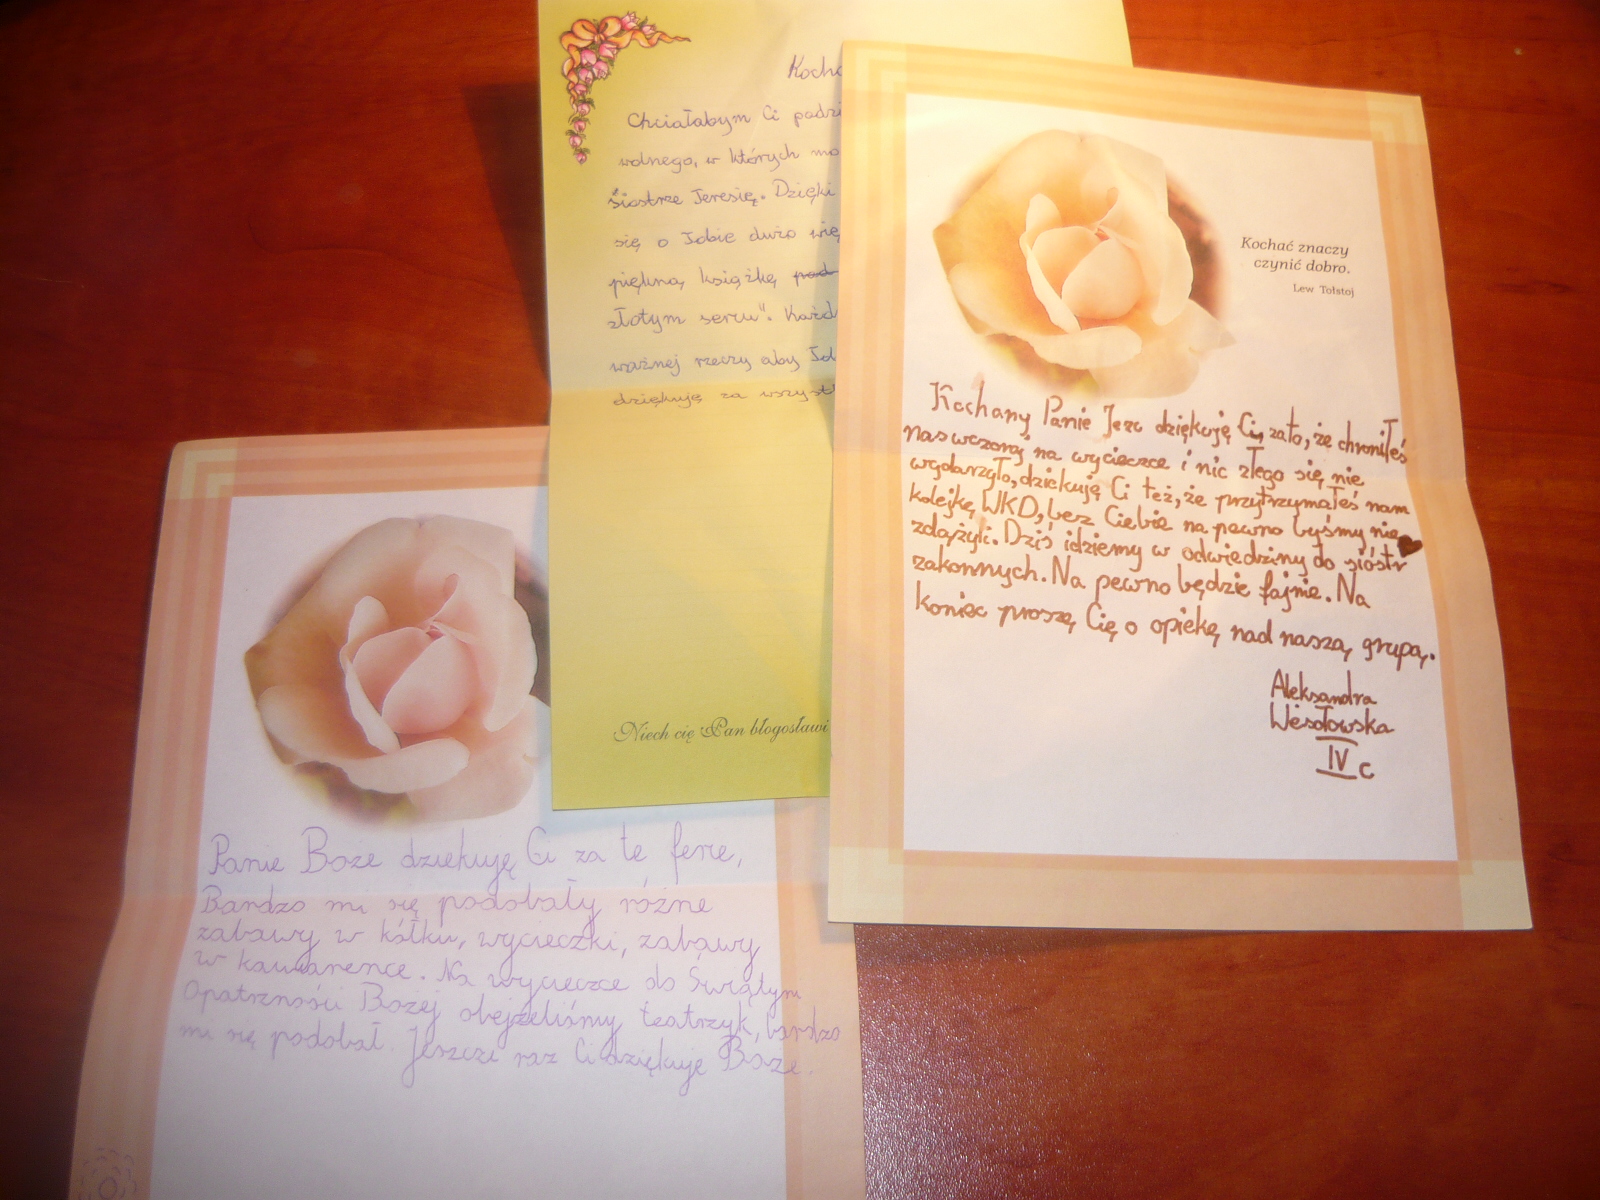 Kochać znaczy
czynić dobro.
Lew Tołstoj
Kochany Panie Jezu dziękuję Ci, zato, że chroniłeś
nas wczoraj na wycieczce i nic złego się nie
wydarzyło, dziekuję Ci też, że przytrzymałeś nam
kolejkę WKD, bez Ciebie na pewno byśmy nie
zdążyli. Dziś idziemy w odwiedziny do sióstr
zakonnych. Na pewno będzie fajnie. Na
koniec proszę Cię o opiekę nad naszą grupą.
Aleksandra
Wesołowska
IV c
Chciałabym Ci
wolnego, w których
siostrze Teresie. Dzięki
się o Tobie dużo
piękną książkę
złotym sercu". Każd
ważnej rzeczy aby
dziękuję za
Niech cię Pan błogosławi
Panie Boże dziekuję Ci za te ferie,
Bardzo mi się podobały różne
zabawy w kółku, wycieczki, zabawy
w kawiarence. Na wycieczce do Świątyni
Opatrzności Bożej obejżeliśmy teatrzyk, bardzo
mi się podobał. Jeszcze raz Ci dziękuję Boże.